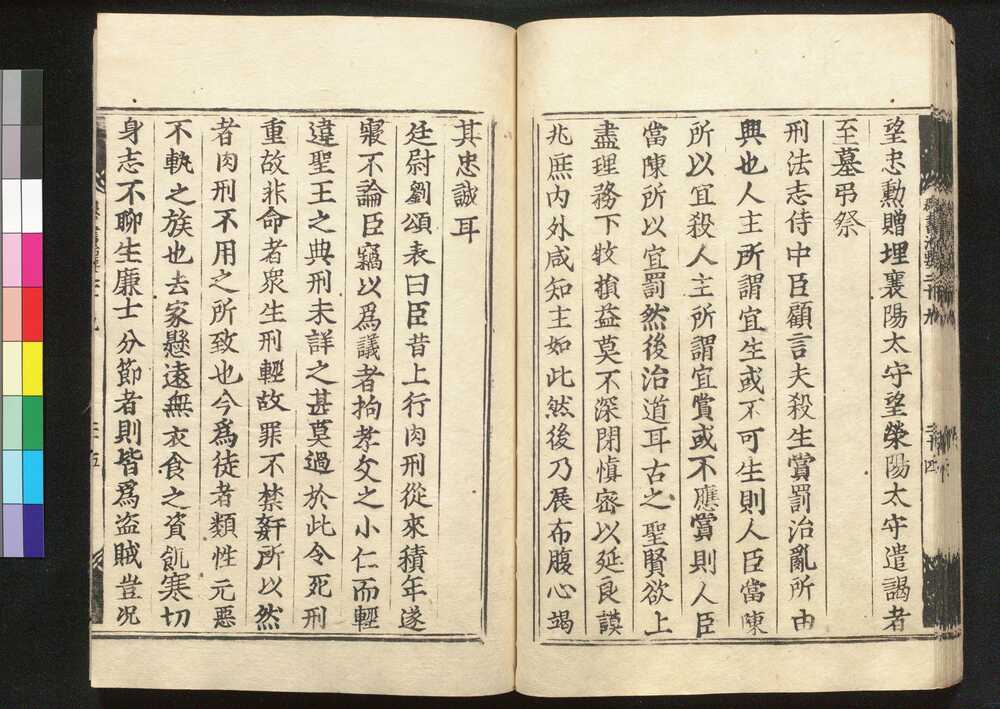 望忠勲贈埋襄陽太守望滎陽太守遣謁者
至墓弔祭
刑法志侍中臣顧言夫殺生賞罰治亂所由
興也人主所謂宜生或不可生則人臣當陳
所以宜殺人主所謂宜賞或不應賞則人臣
當陳所以宜罰然後治道耳古之聖賢欲上
盡理務下牧損益莫不深閉慎密以延良謨
兆庶内外咸知主如此然後乃展布腹心竭
其忠誠耳
廷尉劉頌表曰臣昔上行肉刑從來積年遂
寢不論臣竊以爲議者拘孝文之小仁而輕
違聖王之典刑未詳之甚莫過於此今死刑
重故非命者衆生刑輕故罪不禁姧所以然
者肉刑不用之所致也今爲徒者類性元惡
不軌之族也去家懸遠無衣食之資飢寒切
身志不聊生廉士分節者則皆爲盗賊豈况